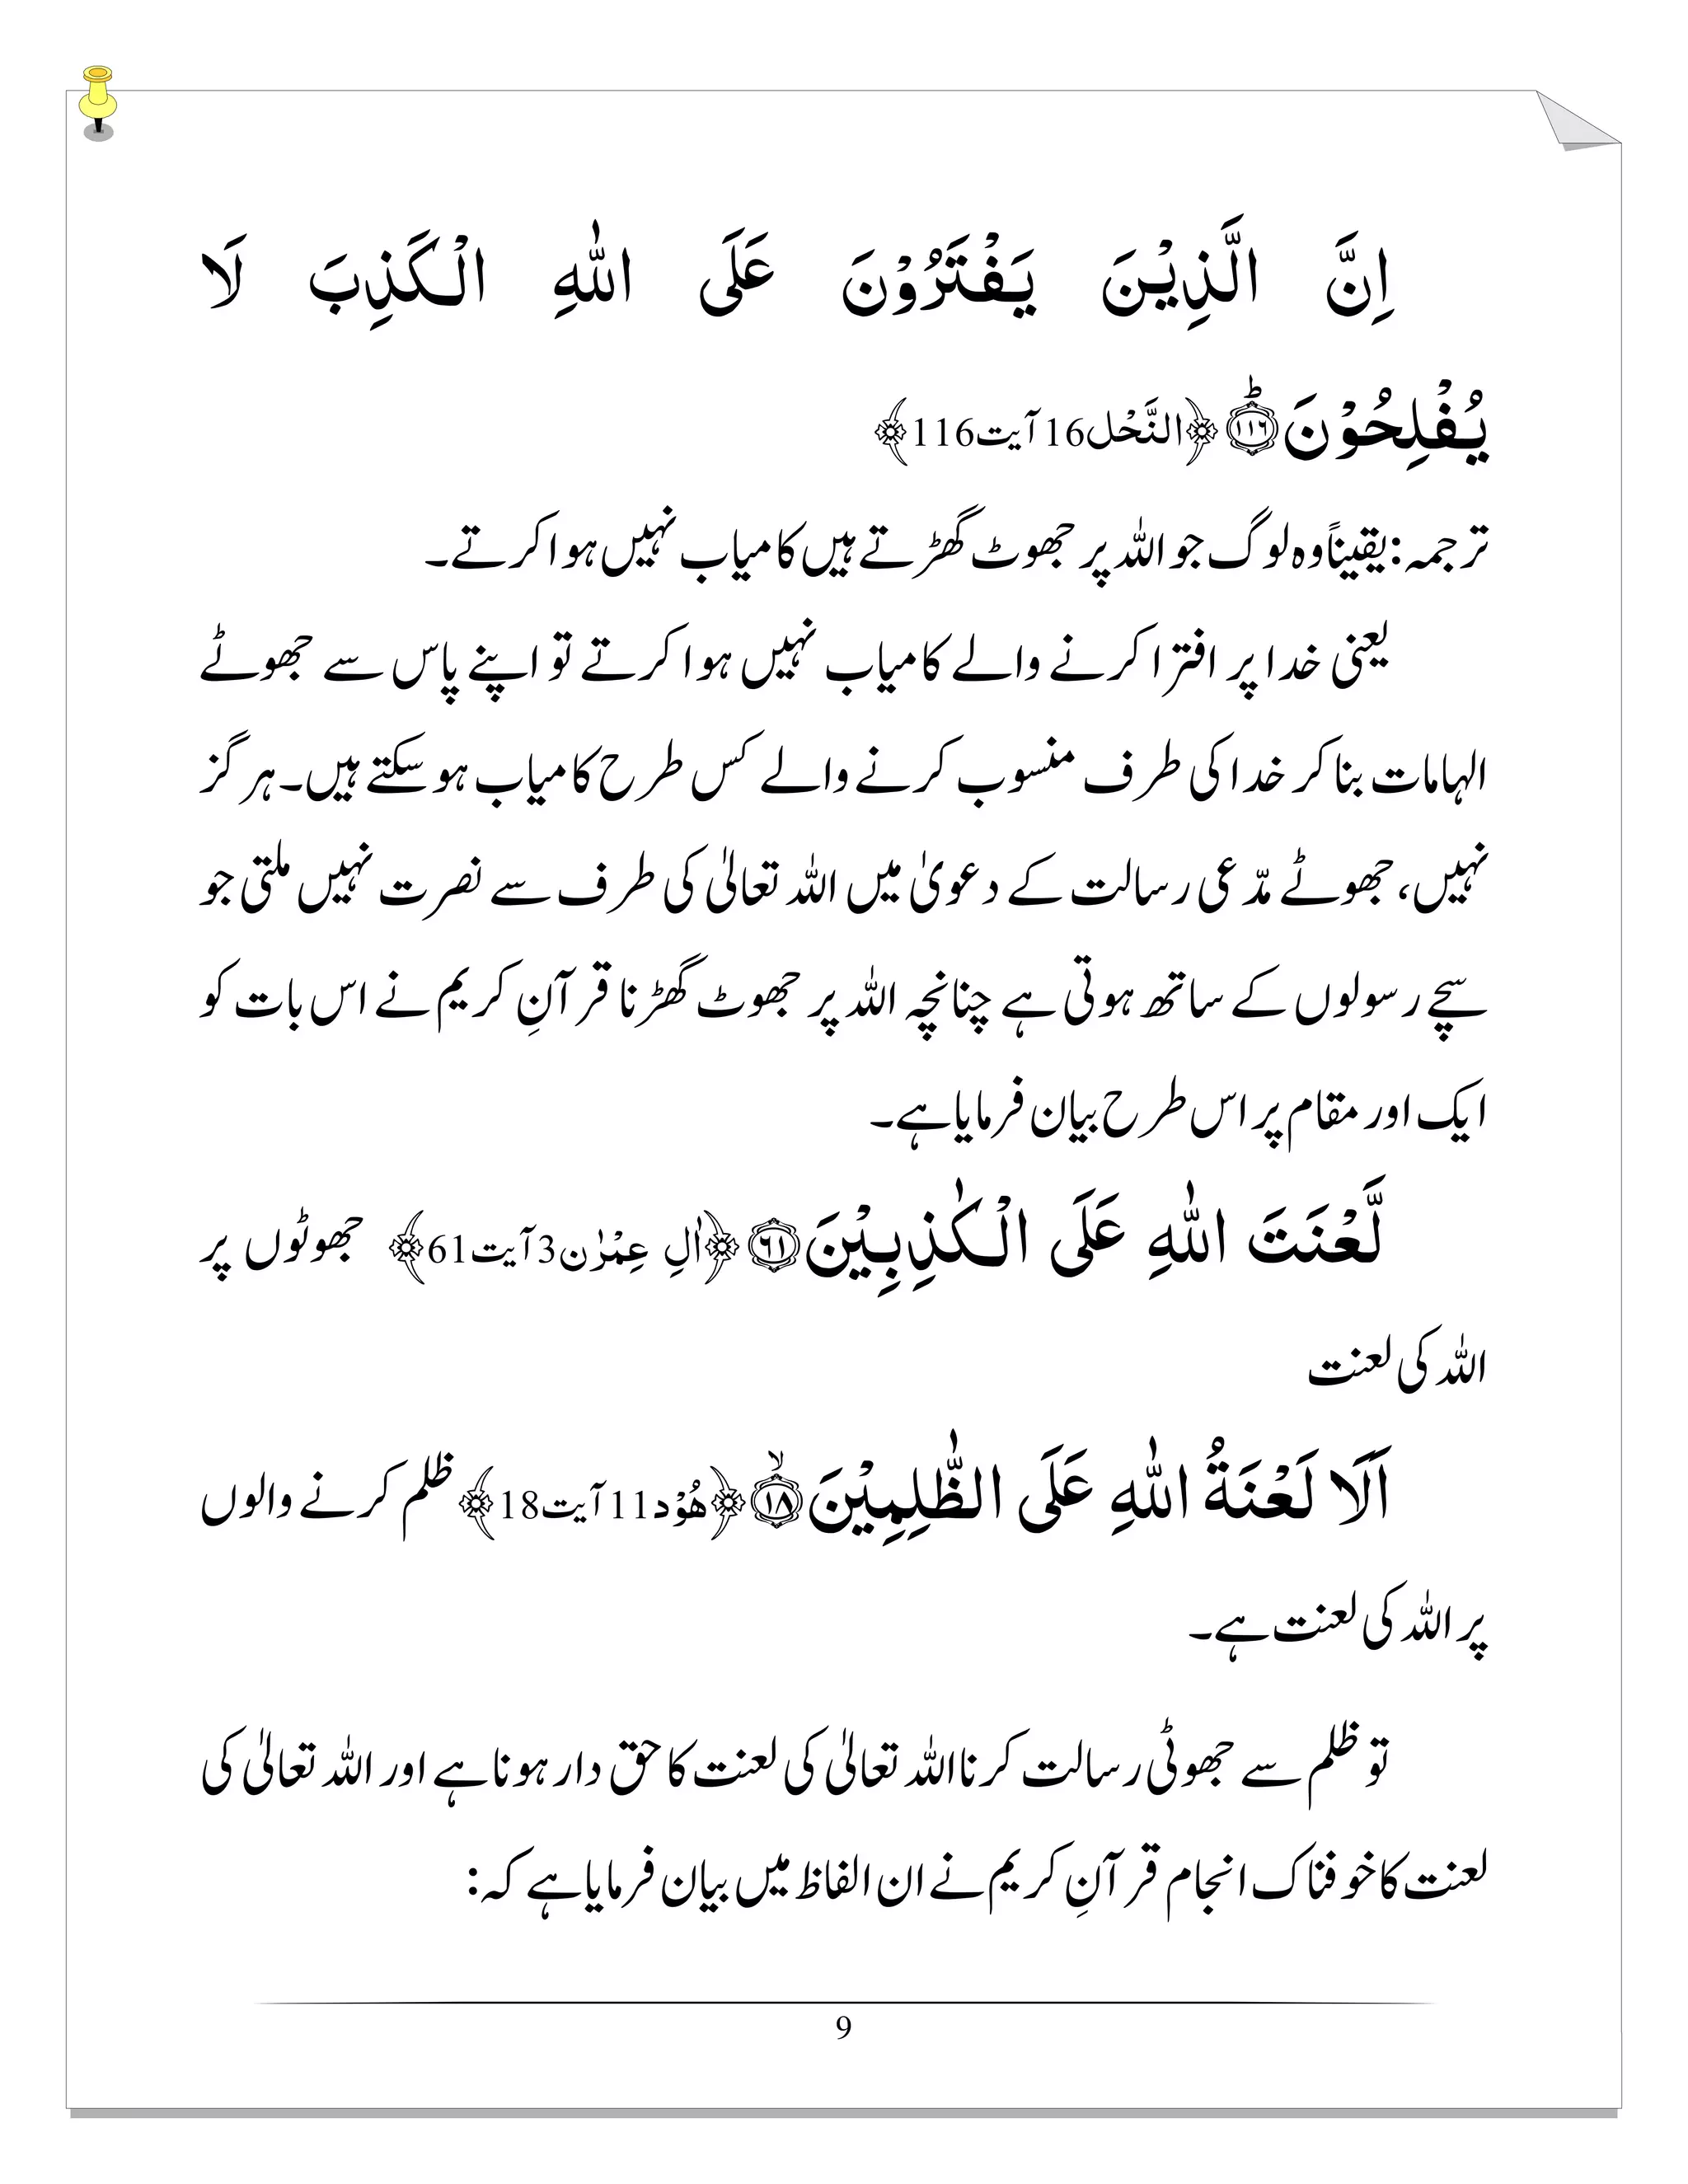 اِنَّ الَّذِيْنَ يَفْتَرُوْنَ عَلَى اللّٰهِ الْكَذِبَ لَا
يُفْلِحُوْنَؕ۝۱۱٦ ﴿النَّحْل16آیت116﴾
ترجمہ:یقیناًوہ لوگ جو اللہ پر جھوٹ گھڑتے ہیں کامیاب نہیں ہوا کرتے۔
یعنی خدا پر افترا کرنے والے کامیاب نہیں ہوا کرتے تو اپنے پاس سے جھوٹے
الہامات بنا کر خدا کی طرف منسوب کرنے والے کس طرح کامیاب ہو سکتے ہیں۔ ہر گز
نہیں، جھوٹے مدّعی رسالت کے دعویٰ میں اللہ تعالیٰ کی طرف سے نصرت نہیں ملتی جو
سچے رسولوں کے ساتھ ہوتی ہے چنانچہ اللہ پر جھوٹ گھڑنا قرآنِ کریم نے اس بات کو
ایک اور مقام پر اس طرح بیان فرمایا ہے۔
لَّعْنَتَ اللّٰهِ عَلَى الْكٰذِبِيْنَ۝٦۱ ﴿اٰلِ عِمْرٰن3آیت61﴾ جھوٹوں پر
اللہ کی لعنت
اَلَا لَعْنَةُ اللّٰهِ عَلَى الظّٰلِمِيْنَۙ۝۱۸ ﴿هُوْد11آیت18﴾ ظلم کرنے والوں
پر اللہ کی لعنت ہے۔
تو ظلم سے جھوٹی رسالت کرنا اللہ تعالیٰ کی لعنت کا حق دار ہونا ہے اور اللہ تعالیٰ کی
لعنت کا خوفناک انجام قرآنِ کریم نے ان الفاظ میں بیان فرمایا ہے کہ:
9